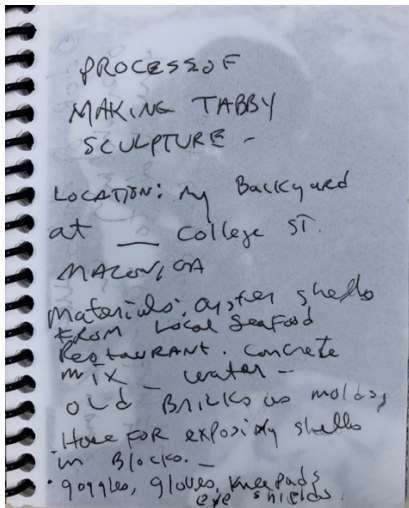 PROCESS OF
MAKING TABBY
SCULPTURE -
LOCATION: My Backyard
at __ College ST.
MACON, GA
Materials: oyster shells
FROM Local Seafood
Restaurant. Concrete
mix _ water -
old Bricks as molds,
Hose FOR exposing shells
in Blocks. _
· goggles, gloves, kneepads
eye shields.